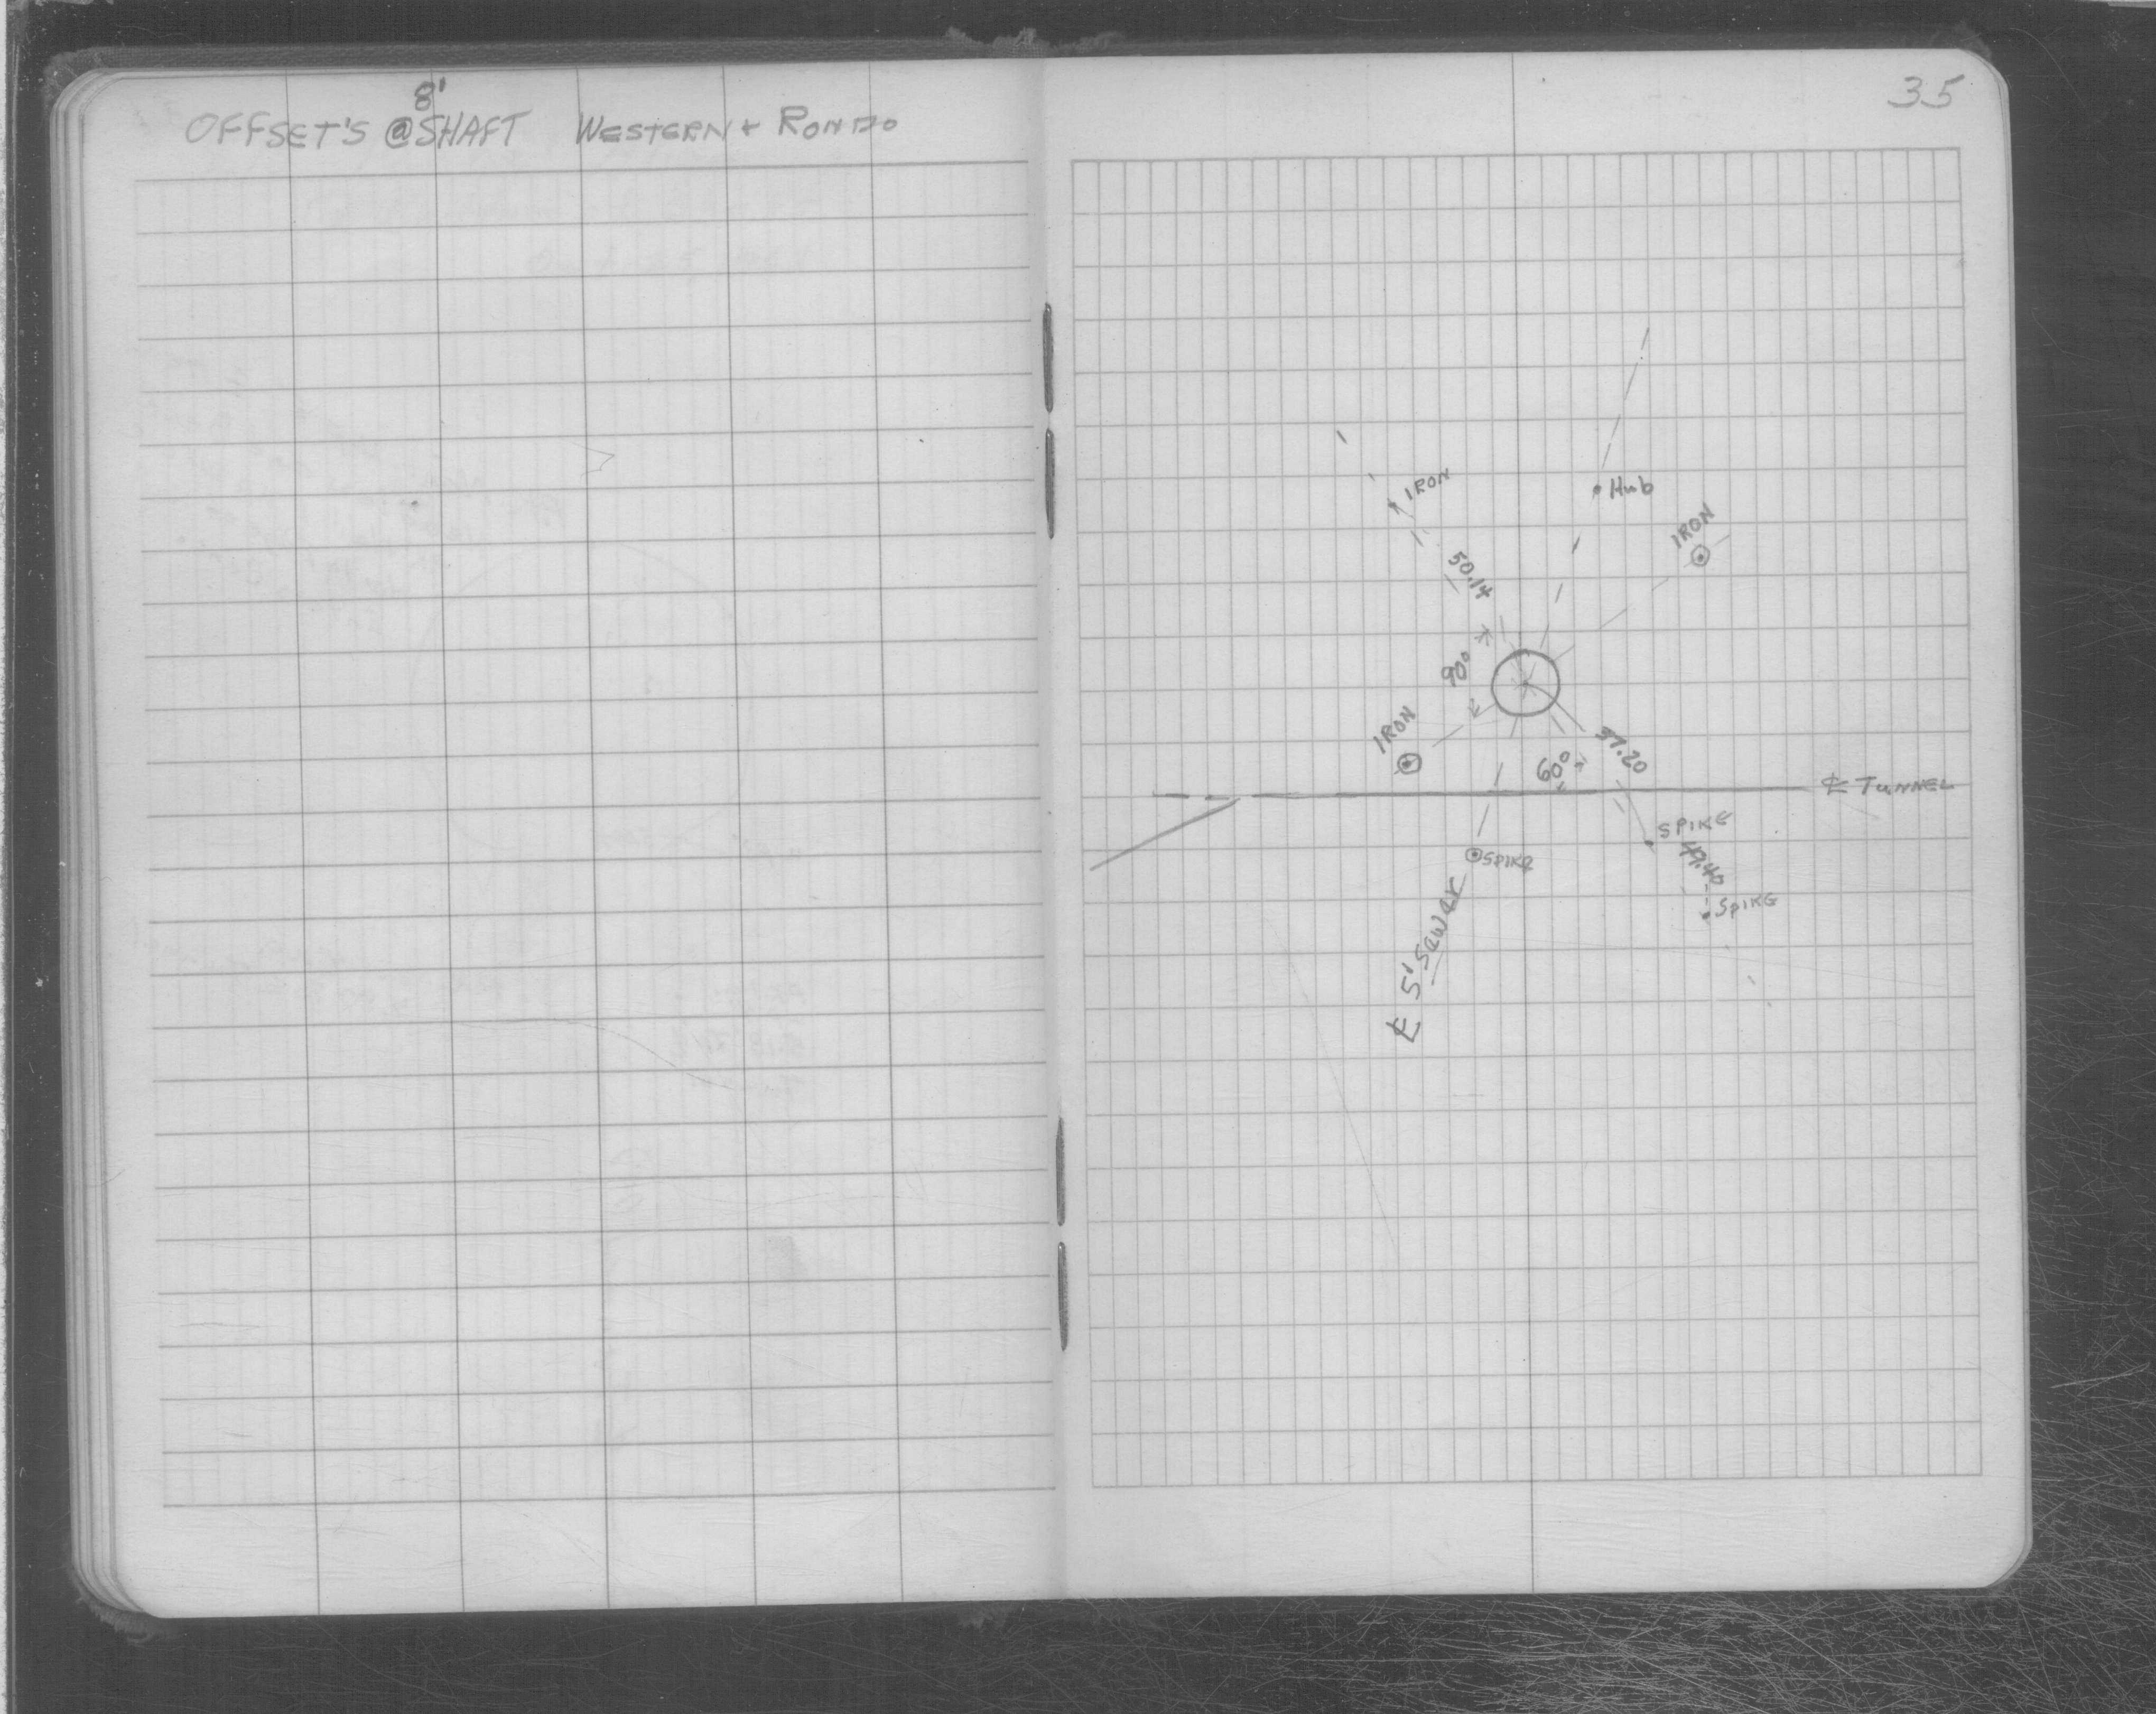 8'
OFFSET'S @ SHAFT WESTERN & RONDO
35
IRON
Hub
IRON
50.14
90°
IRON
37.20
60°
℄ TUNNEL
SPIKE
SPIKE
49.40
SPIKE
℄ 5' Sewer